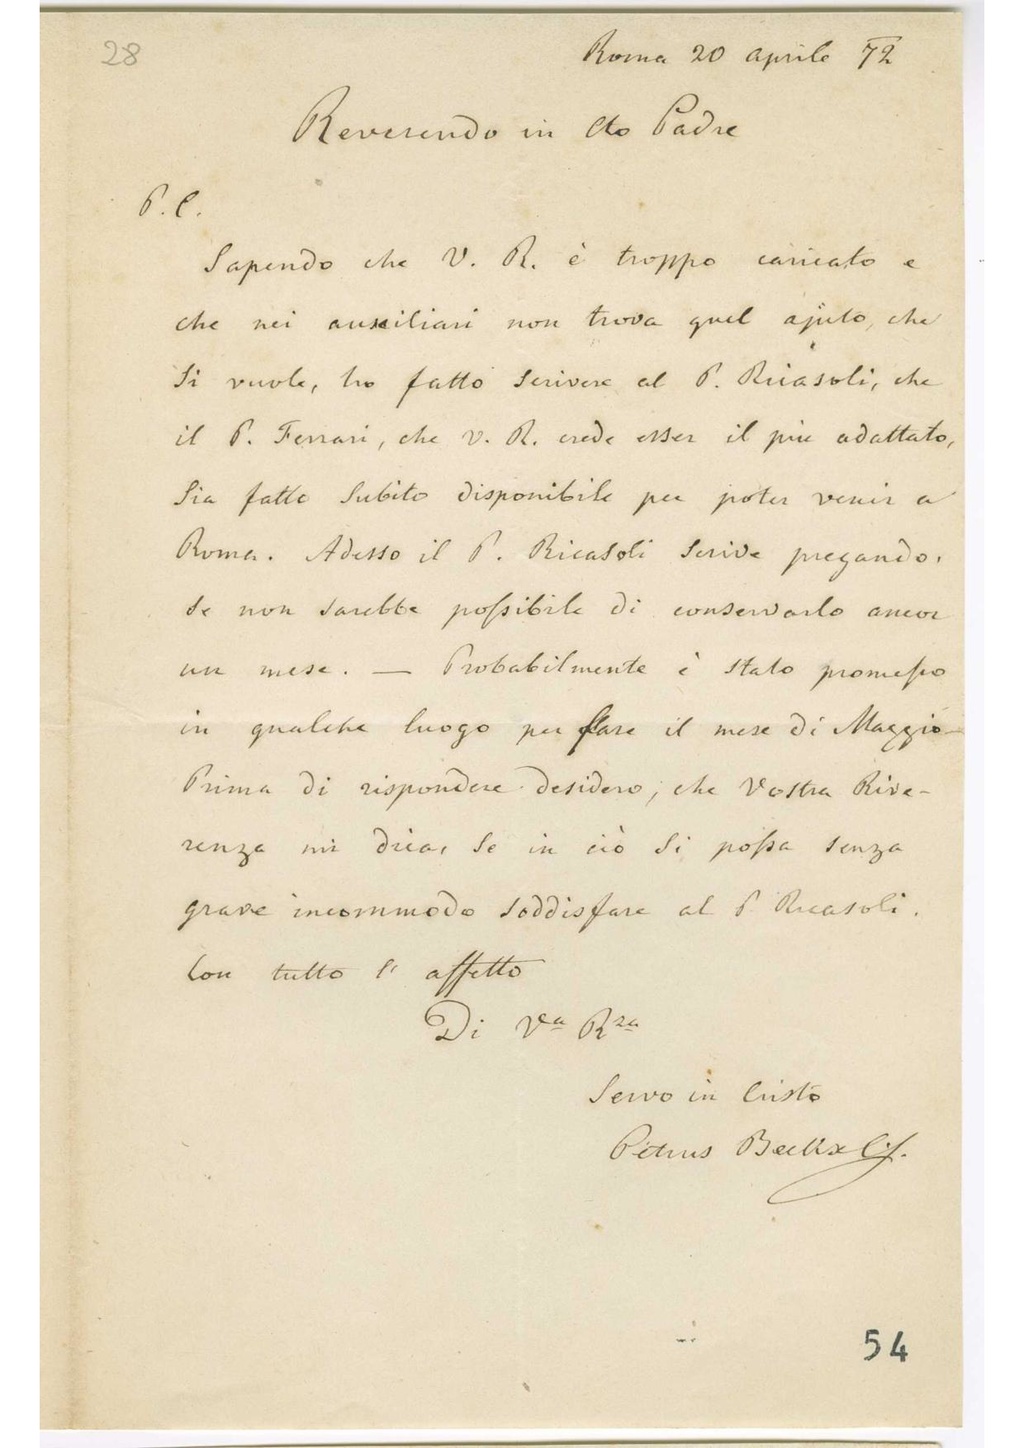 28
Roma 20 aprile 72
Reverendo in Cto Padre
P. C.
Sapendo che V. R. è troppo caricato e
che nei auxiliari non trova quel ajuto, che
si vuole, ho fatto scrivere al P. Ricasoli, che
il P. Ferrari, che V. R. crede esser il più adattato,
sia fatto subito disponibile per poter venir a
Roma. Adesso il P. Ricasoli scrive pregando,
se non sarebbe possibile di conservarlo ancor
un mese. — Probabilmente è stato promesso
in qualche luogo per fare il mese di Maggio
Prima di rispondere desidero, che Vostra Rive-
renza mi dica, se in ciò si possa senza
grave incommodo soddisfare al P Ricasoli.
Con tutto l' affetto
Di Va Rza
Servo in Cristo
Petrus Beckx
54